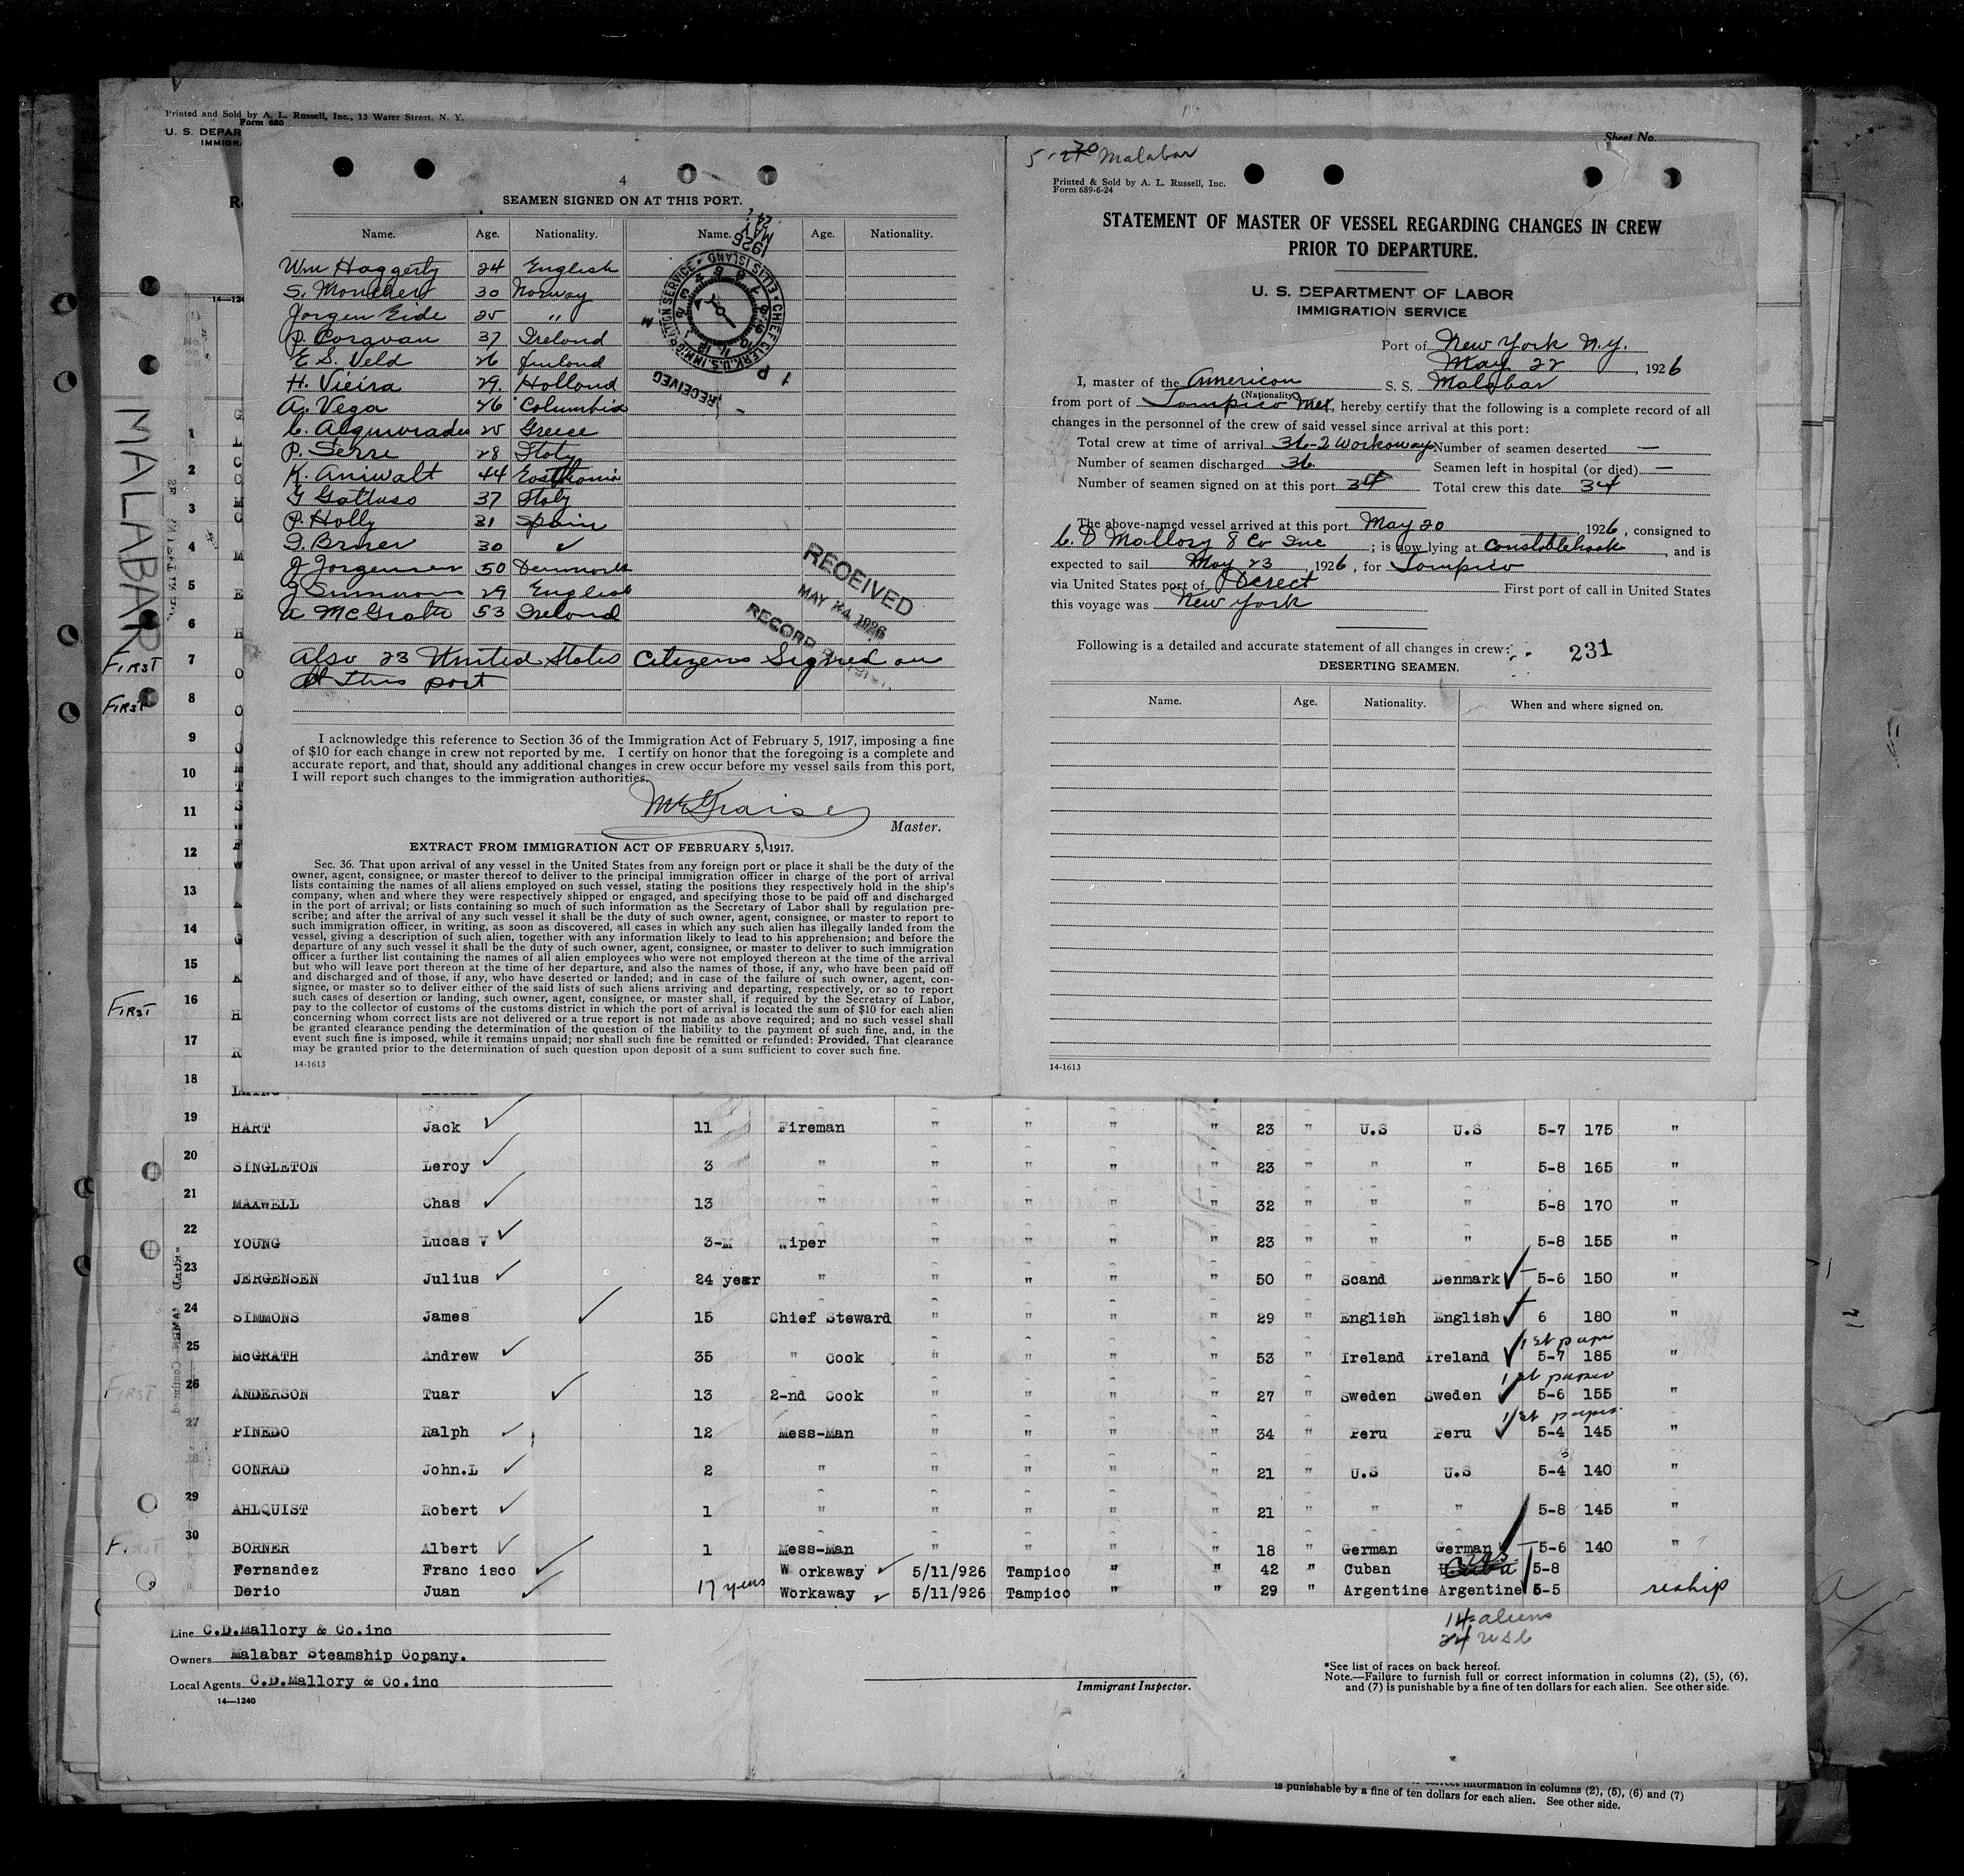 Printed and Sold by A. L. Russell, Inc., 13 Water Street, N. Y.
Form 680
U. S. DEPAR
IMMIGRA
Sheet No.
MALABAR
4
SEAMEN SIGNED ON AT THIS PORT.
Name. Age. Nationality. Name. Age. Nationality.
Wm Haggerty 24 English
S. 30 Norway
Jorgen Eide 25 "
P. Coravan 37 Ireland
E S. Veld 26 Finland
H. Vieira 29. Holland
A. Vega 26 Columbia
C. 25 Greece
P. Serre 28 Italy
K. Aniwalt 44
G Gattuso 37 Italy
P. Holly 31 Spain
30 ✓
J Jorgensen 50 Denmark
J Simmons 29 English
A McGrath 53 Ireland
Also 23 United States Citizens Signed on
at this port
1926
MAY
RECEIVED
CHIEF CLERK, U.S. IMMIGRATION SERVICE • ELLIS ISLAND
RECEIVED
MAY 24 1926
RECORD
I acknowledge this reference to Section 36 of the Immigration Act of February 5, 1917, imposing a fine
of $10 for each change in crew not reported by me. I certify on honor that the foregoing is a complete and
accurate report, and that, should any additional changes in crew occur before my vessel sails from this port,
I will report such changes to the immigration authorities.
Master.
EXTRACT FROM IMMIGRATION ACT OF FEBRUARY 5, 1917.
Sec. 36. That upon arrival of any vessel in the United States from any foreign port or place it shall be the duty of the
owner, agent, consignee, or master thereof to deliver to the principal immigration officer in charge of the port of arrival
lists containing the names of all aliens employed on such vessel, stating the positions they respectively hold in the ship's
company, when and where they were respectively shipped or engaged, and specifying those to be paid off and discharged
in the port of arrival; or lists containing so much of such information as the Secretary of Labor shall by regulation pre-
scribe; and after the arrival of any such vessel it shall be the duty of such owner, agent, consignee, or master to report to
such immigration officer, in writing, as soon as discovered, all cases in which any such alien has illegally landed from the
vessel, giving a description of such alien, together with any information likely to lead to his apprehension; and before the
departure of any such vessel it shall be the duty of such owner, agent, consignee, or master to deliver to such immigration
officer a further list containing the names of all alien employees who were not employed thereon at the time of the arrival
but who will leave port thereon at the time of her departure, and also the names of those, if any, who have been paid off
and discharged and of those, if any, who have deserted or landed; and in case of the failure of such owner, agent, con-
signee, or master so to deliver either of the said lists of such aliens arriving and departing, respectively, or so to report
such cases of desertion or landing, such owner, agent, consignee, or master shall, if required by the Secretary of Labor,
pay to the collector of customs of the customs district in which the port of arrival is located the sum of $10 for each alien
concerning whom correct lists are not delivered or a true report is not made as above required; and no such vessel shall
be granted clearance pending the determination of the question of the liability to the payment of such fine, and, in the
event such fine is imposed, while it remains unpaid; nor shall such fine be remitted or refunded: Provided, That clearance
may be granted prior to the determination of such question upon deposit of a sum sufficient to cover such fine.
14-1613
Malabar
Printed & Sold by A. L. Russell, Inc.
Form 689-6-24
STATEMENT OF MASTER OF VESSEL REGARDING CHANGES IN CREW
PRIOR TO DEPARTURE.
U. S. DEPARTMENT OF LABOR
IMMIGRATION SERVICE
Port of New York N.Y.
May 22, 1926
I, master of the American S. S. Malabar
(Nationality)
from port of Tampico Mex, hereby certify that the following is a complete record of all
changes in the personnel of the crew of said vessel since arrival at this port:
Total crew at time of arrival 36-2 Workaways Number of seamen deserted —
Number of seamen discharged 36 Seamen left in hospital (or died) —
Number of seamen signed on at this port 34 Total crew this date 34
The above-named vessel arrived at this port May 20, 1926, consigned to
C. D Mallory & Co Inc; is now lying at Constablehook, and is
expected to sail May 23, 1926, for Tampico
via United States port of Direct First port of call in United States
this voyage was New York
Following is a detailed and accurate statement of all changes in crew: 231
DESERTING SEAMEN.
Name. Age. Nationality. When and where signed on.
14-1613
1
2
3
4
5
6
FIRST 7
FIRST 8
9
10
11
12
13
14
15
FIRST 16
17
18
19 HART Jack ✓ 11 Fireman " " " " 23 " U.S U.S 5-7 175 "
20 SINGLETON Leroy ✓ 3 " " " " " 23 " " " 5-8 165 "
21 MAXWELL Chas ✓ 13 " " " " " 32 " " " 5-8 170 "
22 YOUNG Lucas V ✓ 3-M Wiper " " " " 23 " " " 5-8 155 "
23 JERGENSEN Julius ✓ 24 year " " " " " 50 " Scand Denmark ✓ 5-6 150 "
24 SIMMONS James ✓ 15 Chief Steward " " " " 29 " English English ✓ 6 180 "
1st papers
25 McGRATH Andrew ✓ 35 " Cook " " " " 53 " Ireland Ireland ✓ 5-7 185 "
1st papers
FIRST 26 ANDERSON Tuar ✓ 13 2-nd Cook " " " " 27 " Sweden Sweden ✓ 5-6 155 "
1st papers
27 PINEDO Ralph ✓ 12 Mess-Man " " " " 34 " Peru Peru ✓ 5-4 145 "
28 CONRAD John.L ✓ 2 " " " " " 21 " U.S U.S 5-4 140 "
29 AHLQUIST Robert ✓ 1 " " " " " 21 " " " 5-8 145 "
30 BORNER Albert ✓ 1 Mess-Man " " " " 18 " German German ✓ 5-6 140 "
Fernandez Franc isco ✓ W orkaway ✓ 5/11/926 Tampico " " 42 " Cuban 5-8
Derio Juan ✓ 17 years Workaway ✓ 5/11/926 Tampico " " 29 " Argentine Argentine 5-5 reship
14 aliens
24 USC
Line C.D.Mallory & Co.inc
Owners Malabar Steamship Copany.
Local Agents C.D.Mallory & Co.inc
14—1240
Immigrant Inspector.
*See list of races on back hereof.
Note.—Failure to furnish full or correct information in columns (2), (5), (6),
and (7) is punishable by a fine of ten dollars for each alien. See other side.
correct information in columns (2), (5), (6) and (7)
is punishable by a fine of ten dollars for each alien. See other side.